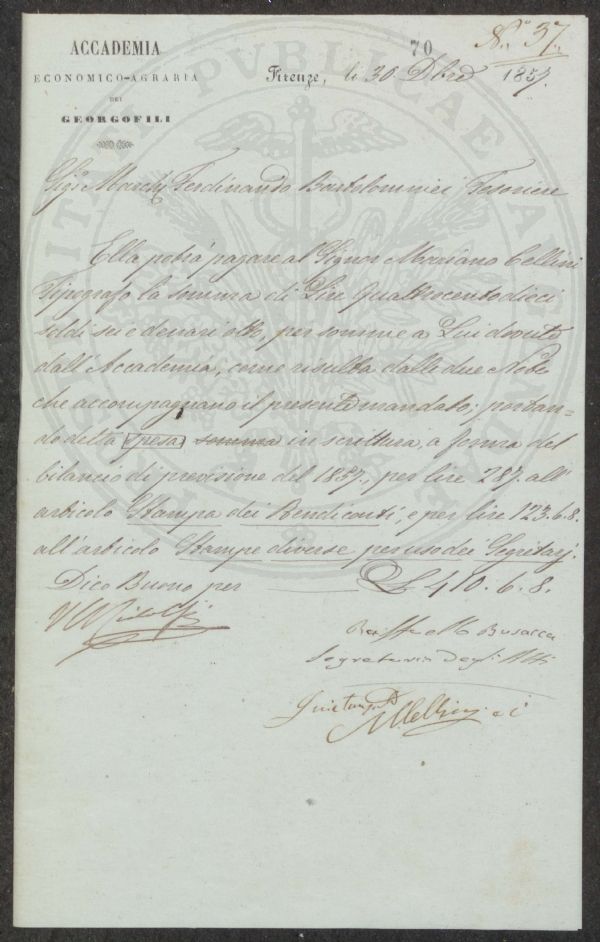 ACCADEMIA
ECONOMICO-AGRARIA
DEI
GEORGOFILI
70
N.° 37.
Firenze, li 30 Dbre 1857.
Sigr. March. Ferdinando Bartolommei Tesoriere
Ella potrà pagare al Signor Mariano Cellini
Tipografo la somma di Lire quattrocentodieci
soldi sei e denari otto, per somme a Lui dovute
dall'Accademia, come risulta dalle due Note
che accompagnano il presente mandato; portan-
do detta spesa somma in scrittura, a forma del
bilancio di previsione del 1857., per lire 287. all'
articolo Stampa dei Rendiconti, e per lire 123.6.8.
all'articolo Stampe diverse per uso dei Segretarj.
Dico Buono per £ 410.6.8.
Raffaello Busacca
Segretario degli Atti
M Cellini e C
PUBLICAE